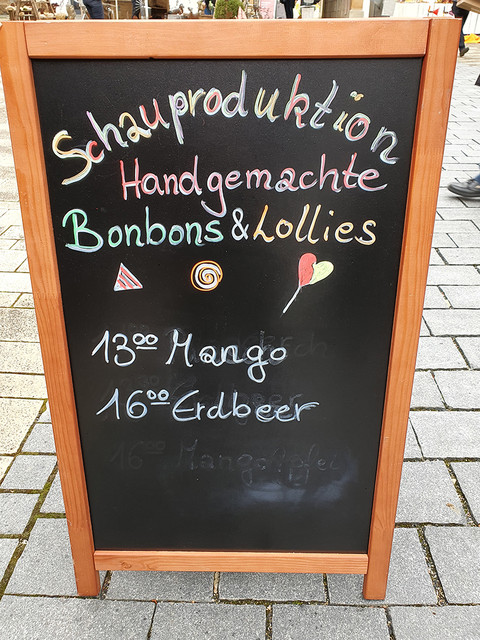 Schauproduktion
Handgemachte
Bonbons & Lollies
13⁰⁰ Mango
16⁰⁰ Erdbeer